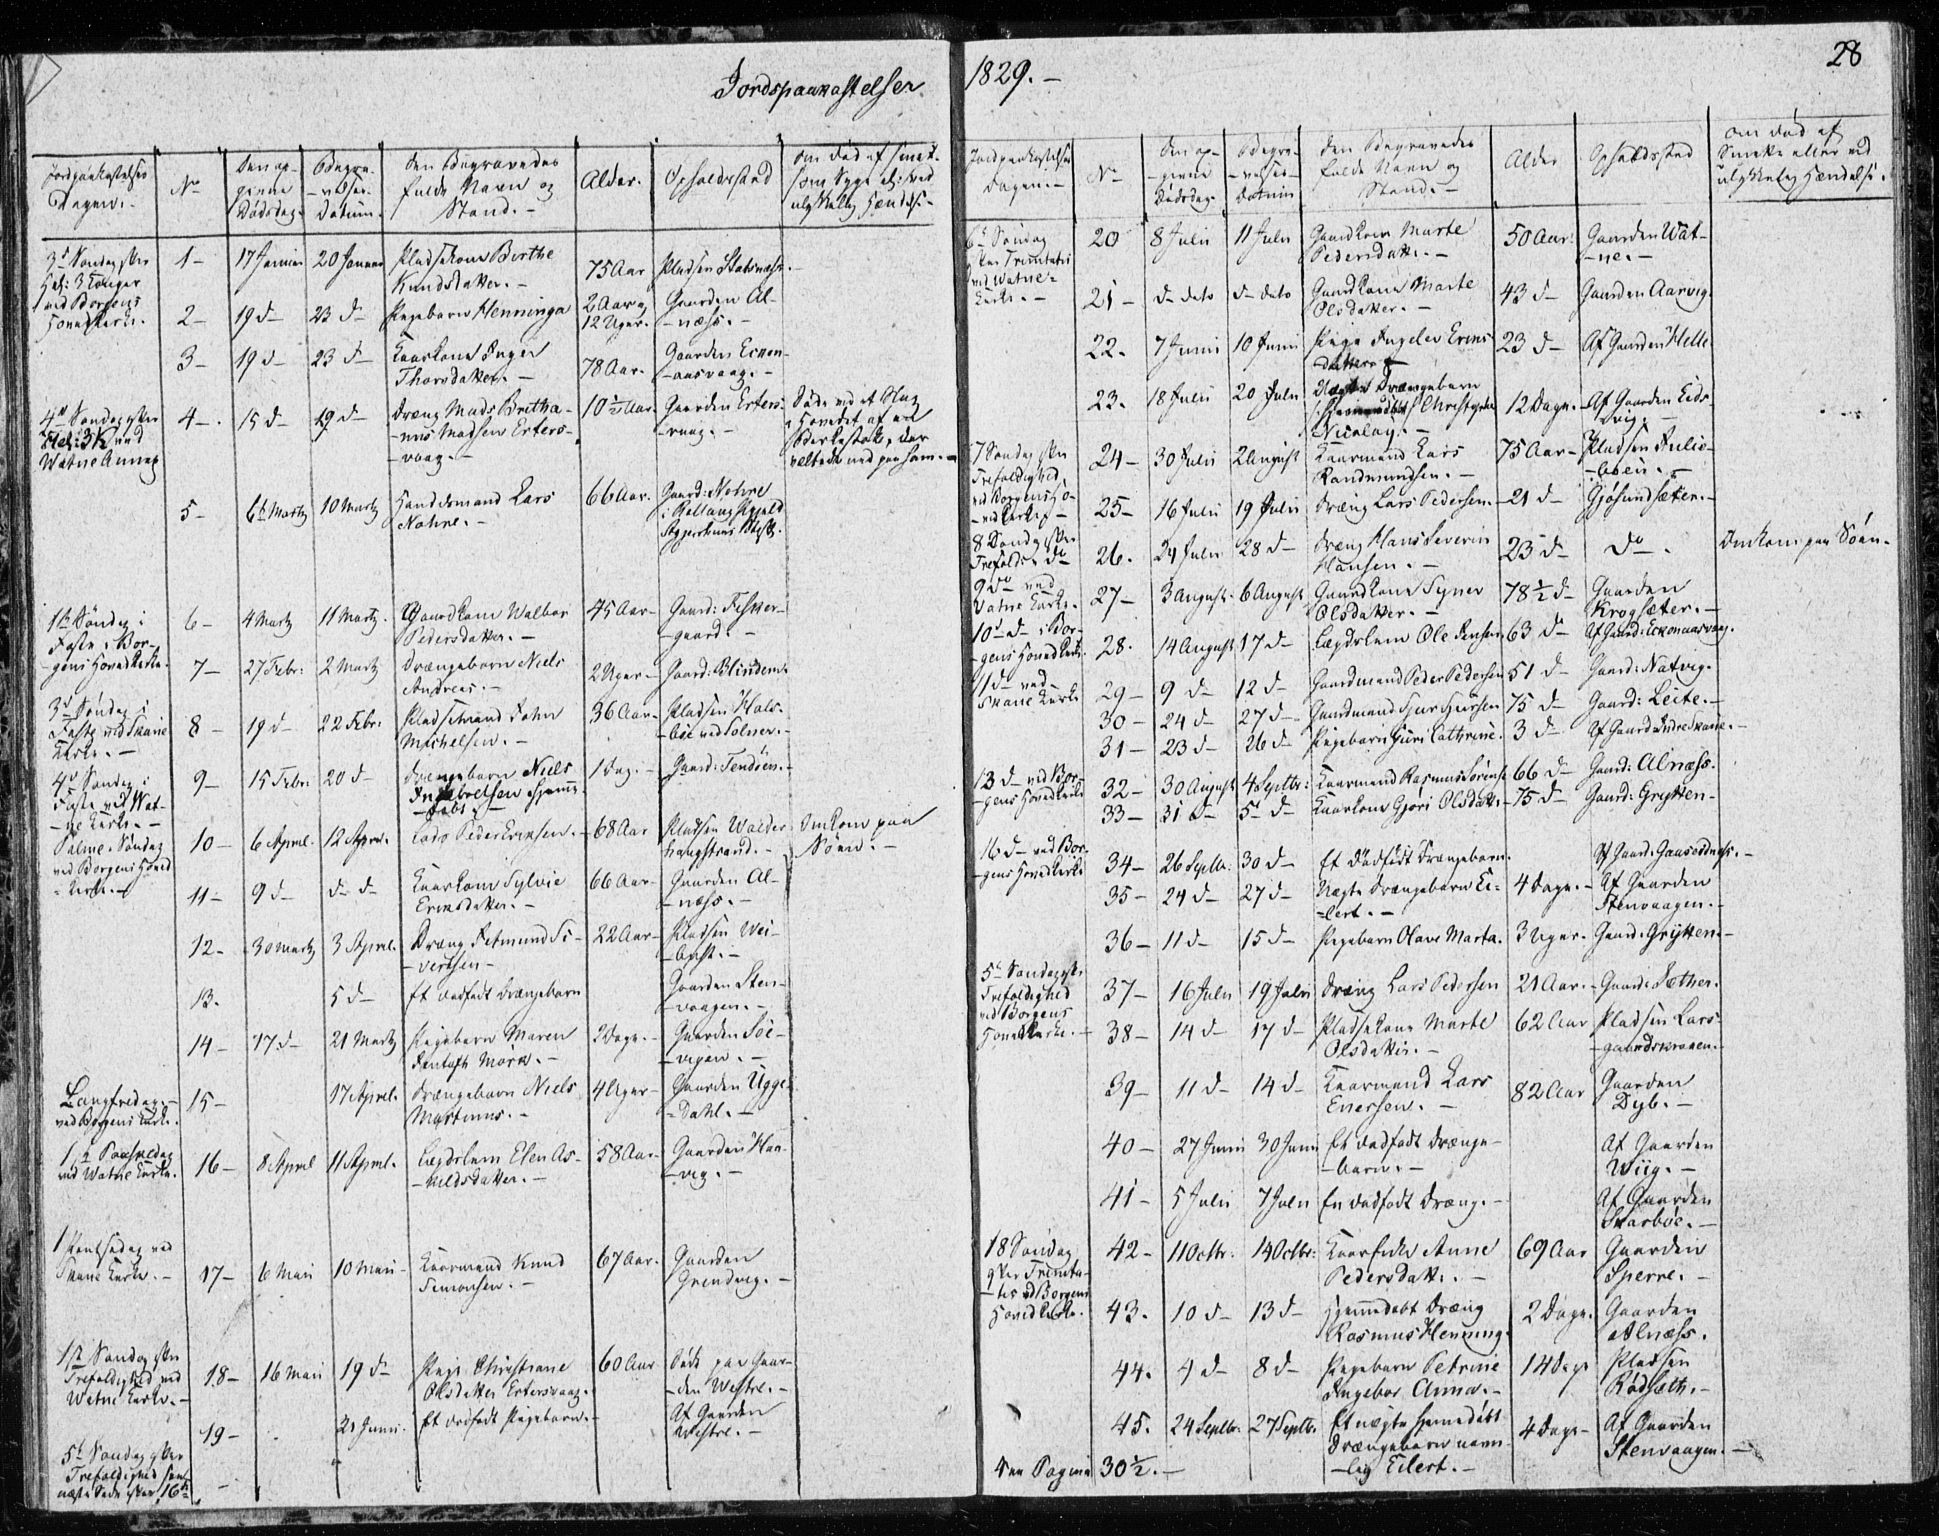 Jordspaakastelser
1829. –
28
Jordpaakastelses Dagen. –
No
Den opgivne Dødsdag.
Begravelses Datum.
Den Begravedes fulde Navn og Stand. –
Alder.
Opholdssted
Om død af smitsom Syge el: ved ulykkelig Hændelse –
3d Søndag efter Hel: 3 Konger ved Borgens Hovedkirke.
1– 17 Januar 20 Januar Pladskone Birthe Knudsdatter. – 75 Aar Pladsen
2– 19 d– 23 d– Pigebarn Henninga 2 Aar og 12 Uger. Gaarden Alnæss. –
3– 19 d– 23 d– Kaarkone Inger Thorsdatter. – 78 Aar. Gaarden Eckonaasvaag. –
4de Søndag efter Hel: 3 K ved Watne Annex
4– 15 d– 19 d– Dræng Mads Madsen Ertersvaag. – 10½ Aar. Gaarden Ertersvaag. – Døde ved et Slag i Hovedet af en Birkestok, der veltede ned paa ham. –
5– 6te Marty 10 Marty Handelsmand Lars Nohre. – 66 Aar. Gaard: Nohre
1te Søndag i Faste i Borgens Hovedkirke.
6– 4 Marty 11 Marty. Gaardkone Walbor Pedersdatter. – 45 Aar– Gaard: Fiskergaard. –
7– 27 Febr: 2 Marty Drængebarn Niels Andreas. – 2 Uger– Gaard: Blindem.
3d Søndag i Faste ved Skarie Kirke. –
8 – 19 d– 22 Febr. Pladsmand John Michelsen. – 36 Aar. Pladsen
4d Søndag i Faste ved Watne Kirke. –
9– 15 Febr: 20 d– Drængebarn Niels hjemmedøbt. – 1 Dag. – Gaard: Tendøen. –
Palme-Søndag ved Borgens Hovedkirke. –
10– 6 April. 12 April. Peder Ericksen. – 68 Aar Pladsen Walderhaugstrand. – Omkom paa Søen. –
11– 9 d– d– d– Kaarkone Sylvie Ericksdatter. – 66 Aar. Gaarden Alnæss. –
12– 30 Marty 3 April. Dræng Sivertsen – 22 Aar– Pladsen
13. 5 d– Et dødfødt Drængebarn Gaarden Stenvaagen. –
14– 17 d– 21 Marty Pigebarn Maren 2 Dage. – Gaarden Søevigen. –
Langfredag. – ved Borgens Kirke.
15– 17 April. Drængebarn Niels Martinus. – 4 Uger– Gaarden Uggedahl. –
1te Paaskedag ved Watne Kirke.
16– 8 April 11 April. Lægdslem Elen Askildsdatter. – 58 Aar. Gaarden
1 Pintsedag ved Skarie Kirke. –
17– 6 Maii 10 Maii– Kaarmand Knud Simonsen. – 67 Aar. Gaarden Grendvig. –
1ste Søndag efter Trefoldighed ved Watne Kirke. –
18– 16 Maii 19 d– Pige Christiane Olsdatter Ertersvaag. 60 Aar Døde paa Gaarden Westre. –
19– 21 Junii. Et dødfødt Pigebarn. – Af Gaarden Westre. –
5te Søndag efter Trefoldighed næste Side efter 16de
Jordpaakastelses Dagen. –
No
Den opgivne Dødsdag.
Begravelses Datum
Den Begravedes fulde Navn og Stand. –
Alder
Opholdssted
Om død af Smitte eller ved ulykkelig Hændelse.
6te Søndag efter Trinitatis ved Watne Kirke. –
20 8 Julii 11 Julii Gaardkone Marte Pedersdatt. – 50 Aar Gaarden Watne. –
21 – d– dato d– dato Gaardkone Marte Olsdatter. – 43 d– Gaarden Aarvig.
22. 7 Junii 10 Junii Pige Ingeler Ericksdatter 23 d– Af Gaarden Helle
23. 18 Julii 20 Julii Uægte Drængebarn Nicolay. – 12 Dage. – Af Gaarden Eidsvig. –
7 Søndag efter Trefoldighed ved Borgens Hovedkirke –
24– 30 Julii 2 August Kaarmand Lars Randmundsen. – 75 Aar– Pladsen
25– 16 Julii 19 Julii Dræng Lars Pedersen. – 21 d– Gjøsundsæter. –
8 Søndag efter Trefoldigh. d–
26. 24 Julii 28 d– Dræng Hans Severin Hansen. – 23 d– Do –. Omkom paa Søen–
9 Do ved Vatne Kirke.
27– 3 August. 6 August Gaardkone Signer Olsdatter. – 78½ d– Gaarden Krogsæter. –
10d– d– i Borgens Hovedkirke.
28. 14 August 17 d– Lægdslem Ole Jensen 63 d– Af Gaard: Eckonaasvaag.
11 d– ved Skarie Kirke
29– 9 d– 12 d– Gaardmand Peder Pedersen 51 d– Gaard: Natvig.
30– 24 d– 27 d– Gaardmand 75 d– Gaard: Leite. –
31– 23 d– 26 d– Pigebarn Guri Cathrine. 3 d– Af Gaard Indreskarie. –
13 d– ved Borgens Hovedkirke
32– 30 August 4 Septbr: Kaarmand Rasmus 66 d– Gaard: Alnæss.
33– 31 d– 5 d– Kaarkone Gjøri Olsdatt. – 75 d– Gaard: Grytten–
16 d– ved Borgens Hovedkirke
34– 26 Septbr. 30 d– Et dødfødt Drængebarn. Af Gaard: –
35– 24 d– 27 d– Uægte Drængebarn Eilert. – 4 Dage. – Af Gaarden Stenvaagen. –
36– 11 d– 15 d– Pigebarn Olave Marta. 3 Uger. Gaard: Grytten. –
5te Søndag efter Trefoldighed ved Borgens Hovedkirke. –
37– 16 Julii 19 Julii Dræng Lars Pedersen 21 Aar. – Gaard: Sæther.
38– 14 d– 17 d– Pladskone Marte Olsdatter. – 62 Aar Pladsen
39– 11 d– 14 d– Kaarmand Lars Enersen. – 82 Aar Gaarden Dyb. –
40– 27 Junii 30 Junii Et dødfødt Drængebarn. – Af Gaarden Wiig. –
41– 5 Julii 7 Julii En dødfødt Dræng. – Af Gaarden Skarbøe. –
18 Søndag efter Trinitatis ved Borgens Hovedkirke.
42– 11 Octbr: 14 Octbr: Anne Pedersdatt. – 69 Aar Gaarden Sperre. –
43. 10 d– 13 d– Hjemmedøbt Dræng Rasmus Henning. 2 Dage. Gaarden Alnæss.
44. 4 d– 8 d– Pigebarn Petrine Ingebor Anna. – 14 Dage Pladsen Rødsæth. –
45. 24 Septbr. 27 Septbr. Et uægte hjemmedøbt Drængebarn navnlig Eilert. – 4 Dage– Af Gaarden Stenvaagen. –
See Pagina 30½. –